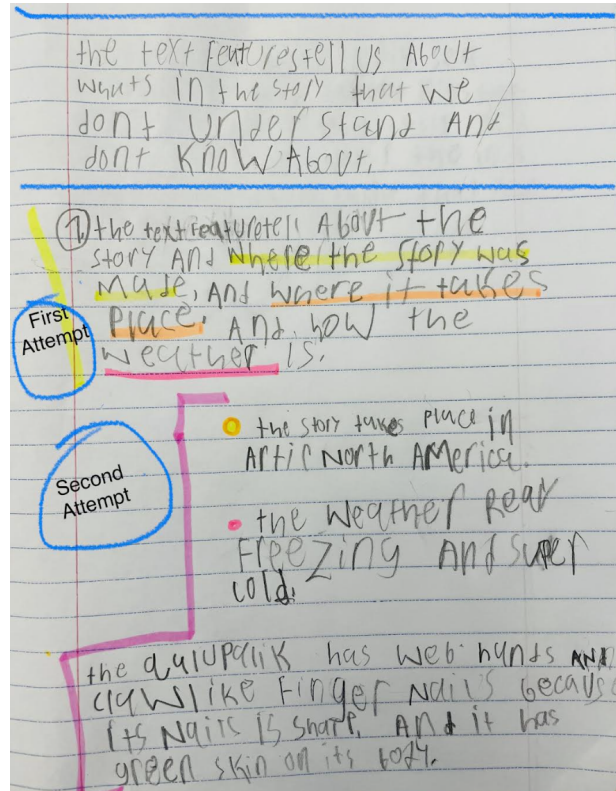 the text featurestell us About
whats in the story that we
dont under stand And
dont know About.
1. the text featuretell About the
story And where the story was
made, And where it takes
place. And how the
weather is.
First
Attempt
the story takes place in
Artic North America.
Second
Attempt
the weather Reay
Freezing And super
cold.
the qalupalik has web hands AND
clawlike Finger Nails becaus
its Nails is sharp. And it has
green skin on its body.